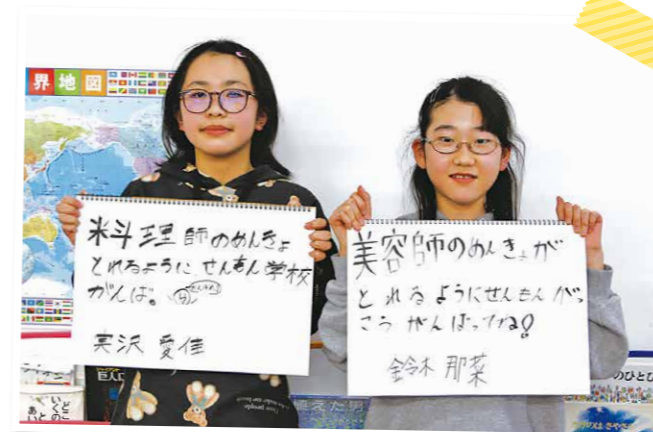 界地図
料理師のめんきょ
とれるように、せんもん学校
がんば。
実沢 愛佳
美容師のめんきょが
とれるようにせんもんがっ
こうがんばってね!
鈴木 那菜
巨人